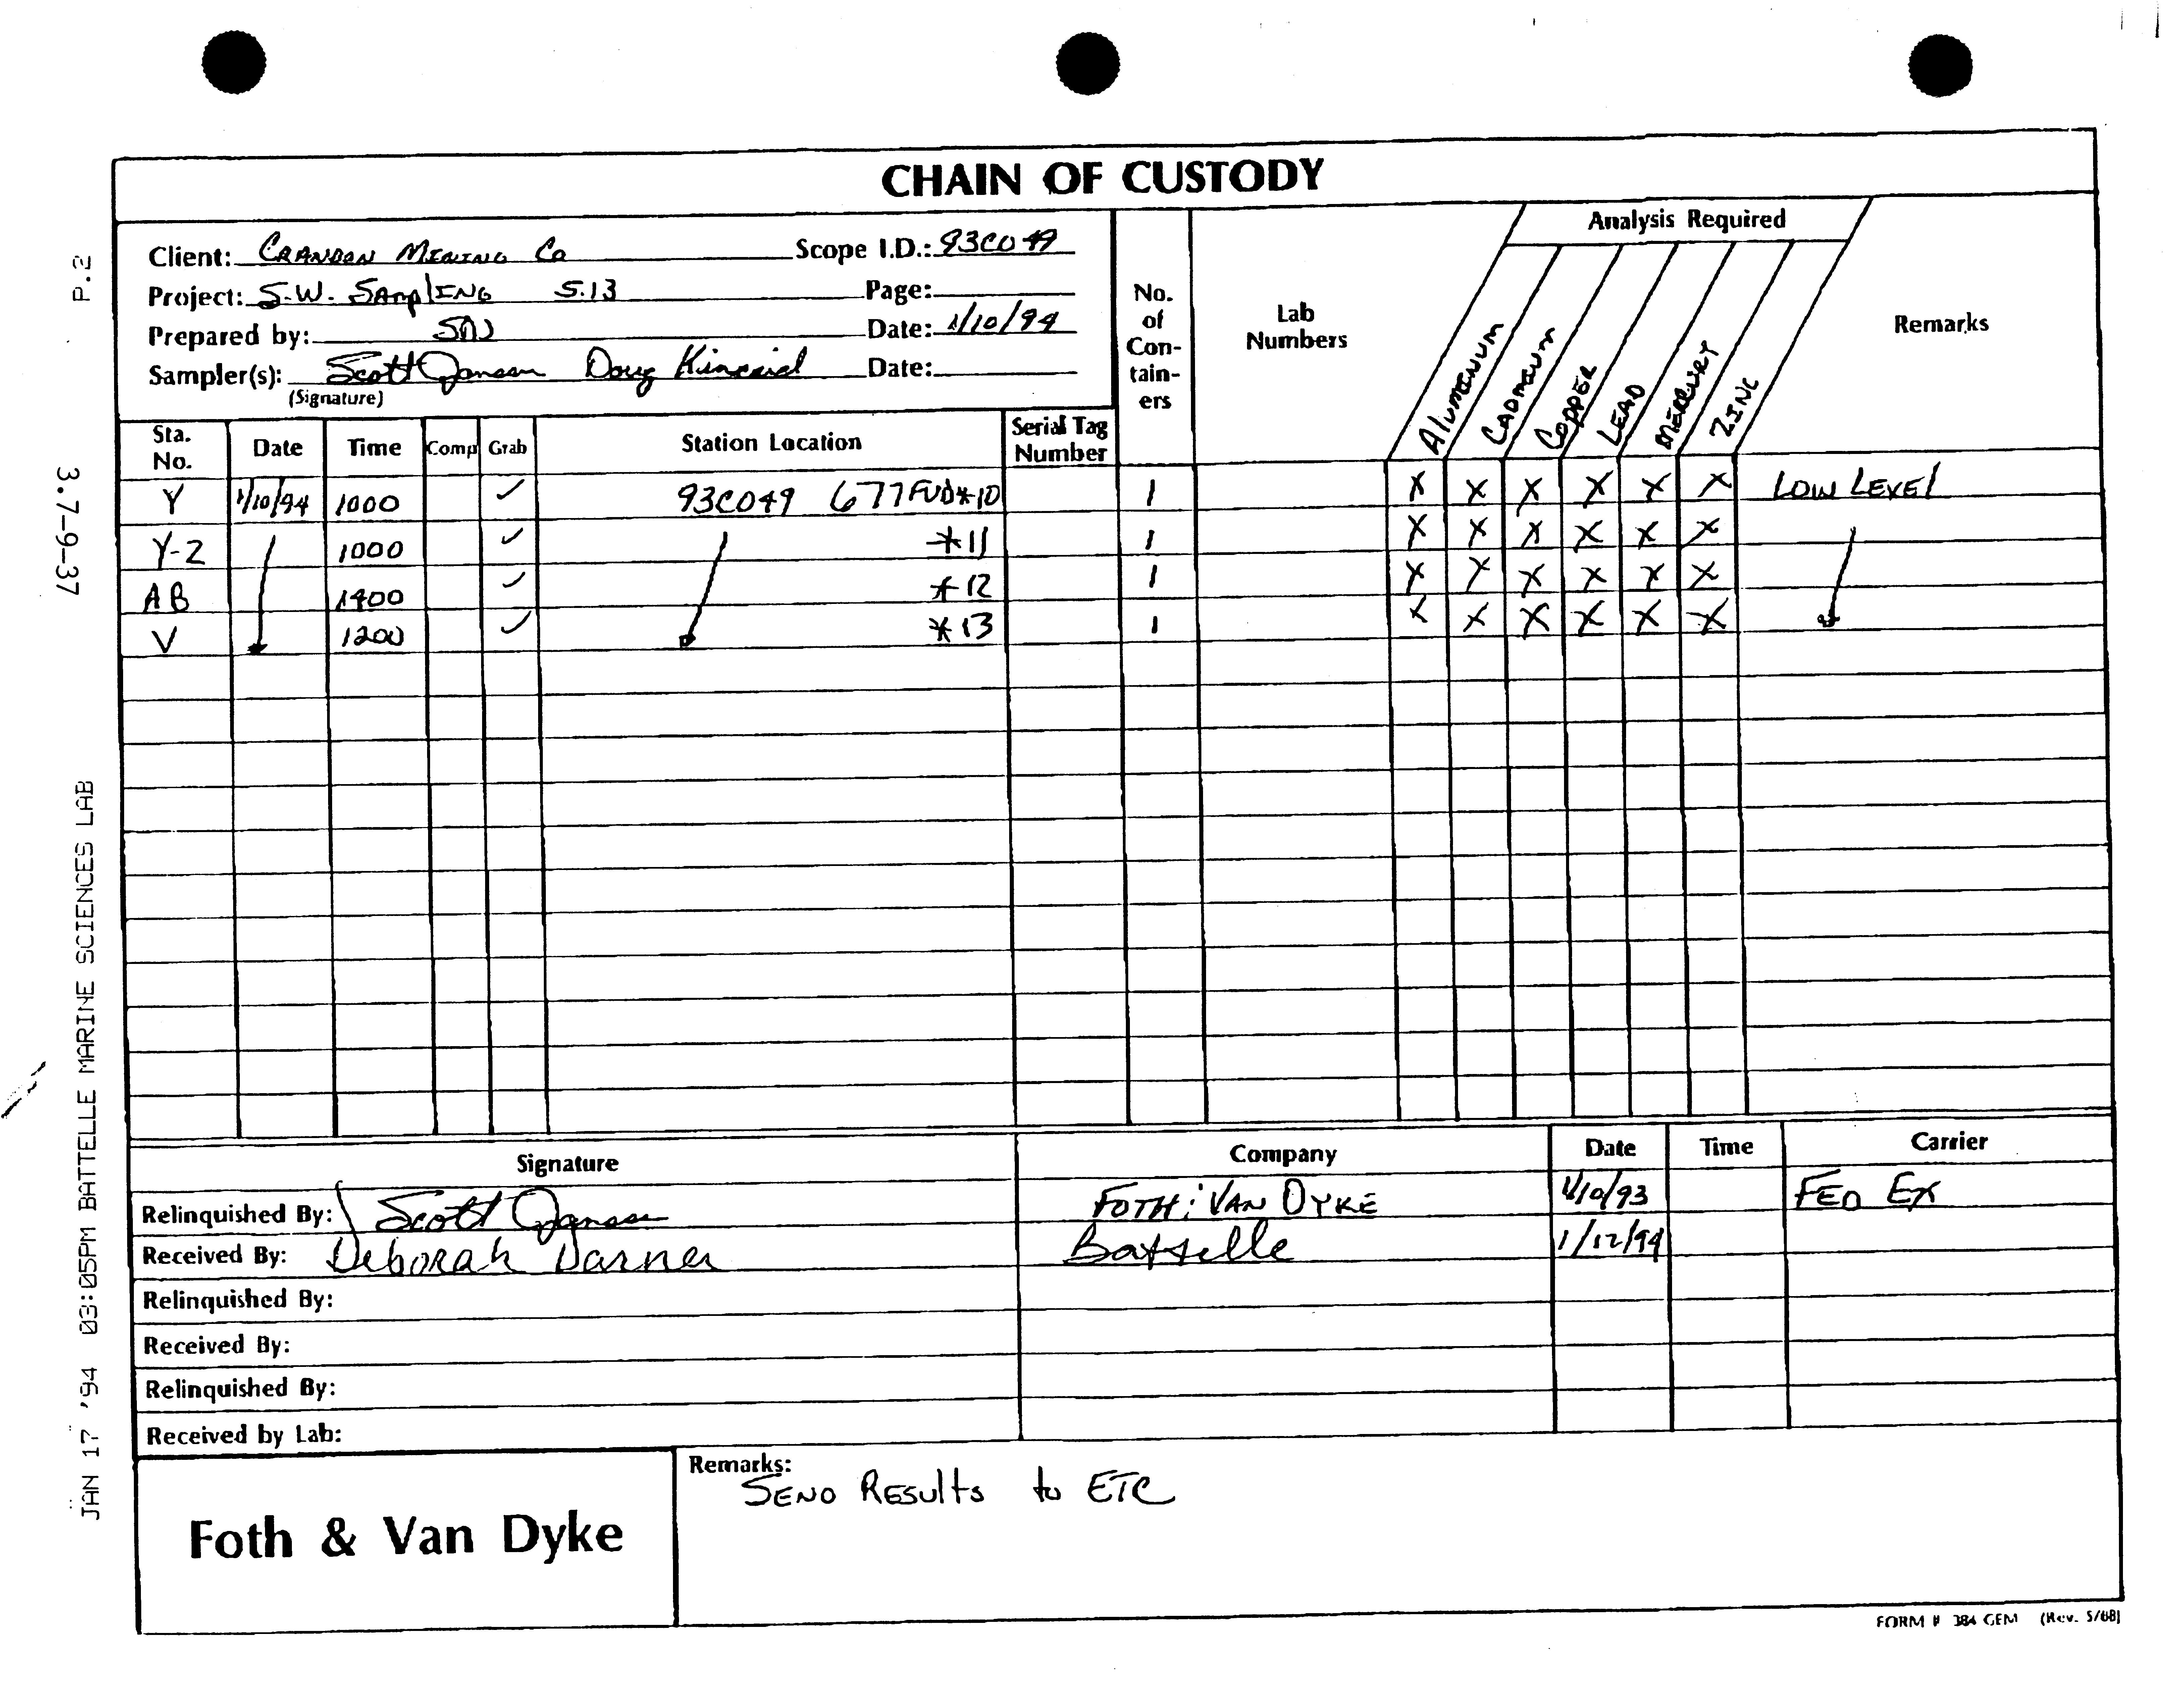 CHAIN OF CUSTODY
Client: CRANDON MINING Co Scope I.D.: 93C049
Project: S.W. SAmplING 5.13 Page:
Prepared by: SDJ Date: 1/10/94
Sampler(s): Scott Jansen Doug Kincaid Date:
(Signature)
No. of Con-tain-ers
Lab Numbers
Analysis Required
AlumINUM CADMIUM COPPER LEAD MERCURY ZINC
Remarks
Sta. No. Date Time Comp Grab Station Location Serial Tag Number
Y 1/10/94 1000 ✓ 93C049 677FUD*10 1 X X X X X X LOW LEVEl
Y-2 1000 ✓ *11 1 X X X X X X
AB 1400 ✓ *12 1 X X X X X X
V 1200 ✓ *13 1 X X X X X X
Signature Company Date Time Carrier
Relinquished By: Scott Jansen FOTH & VAN DYKE 1/10/93 FED EX
Received By: Deborah Darner Battelle 1/12/94
Relinquished By:
Received By:
Relinquished By:
Received by Lab:
Foth & Van Dyke
Remarks:
SEND RESults to ETC
FORM # 384 GEM (Rev. 5/88)
P.2
3.7-9-37
JAN 17 '94 03:05PM BATTELLE MARINE SCIENCES LAB